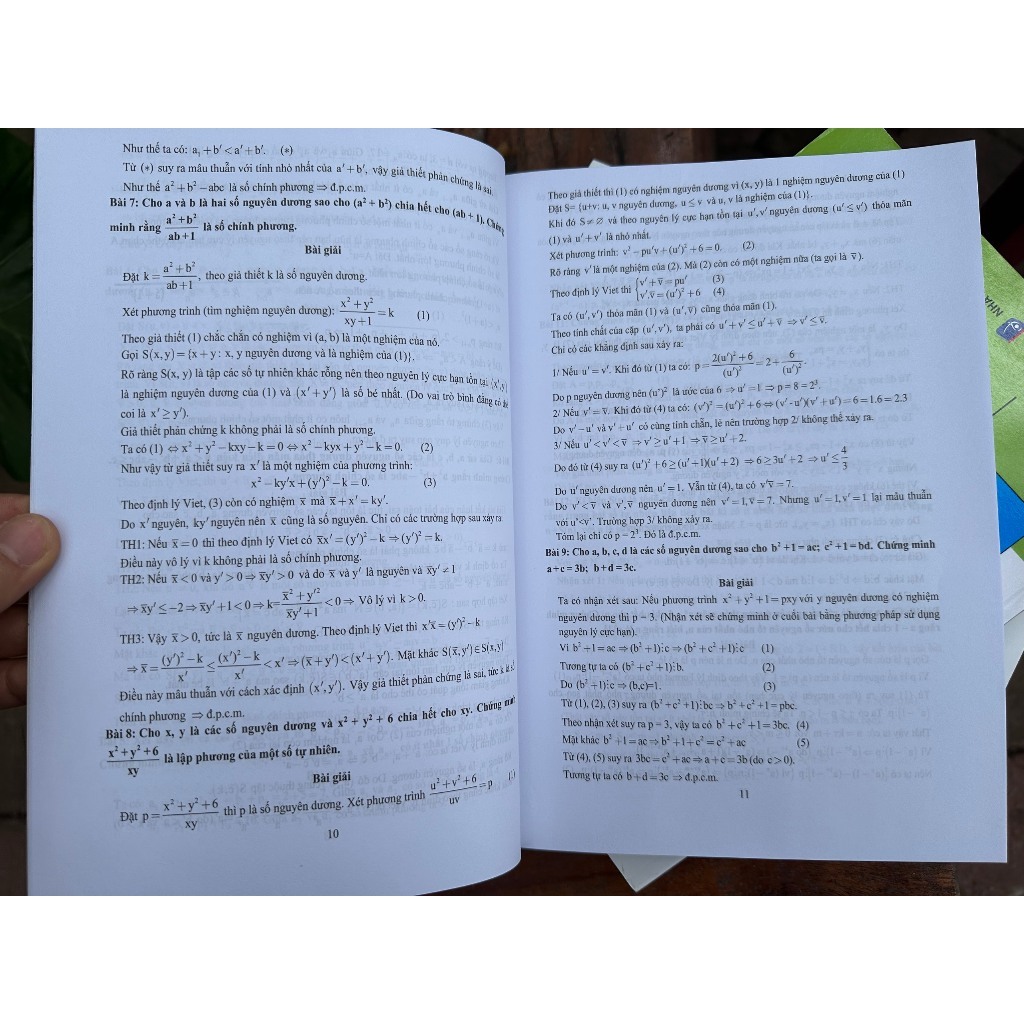 Như thế ta có: a₁ + b' < a' + b'. (*)
Từ (*) suy ra mâu thuẫn với tính nhỏ nhất của a' + b', vậy giả thiết phản chứng là sai.
Như thế a² + b² − abc là số chính phương ⇒ đ.p.c.m.
Bài 7: Cho a và b là hai số nguyên dương sao cho (a² + b²) chia hết cho (ab + 1). Chứng
minh rằng (a² + b²)/(ab + 1) là số chính phương.
Bài giải
Đặt k = (a² + b²)/(ab + 1), theo giả thiết k là số nguyên dương.
Xét phương trình (tìm nghiệm nguyên dương): (x² + y²)/(xy + 1) = k (1)
Theo giả thiết (1) chắc chắn có nghiệm vì (a, b) là một nghiệm của nó.
Gọi S(x, y) = {x + y : x, y nguyên dương và là nghiệm của (1)}.
Rõ ràng S(x, y) là tập các số tự nhiên khác rỗng nên theo nguyên lý cực hạn tồn tại (x', y')
là nghiệm nguyên dương của (1) và (x' + y') là số bé nhất. (Do vai trò bình đẳng có thể
coi là x' ≥ y').
Giả thiết phản chứng k không phải là số chính phương.
Ta có (1) ⇔ x² + y² − kxy − k = 0 ⇔ x² − kyx + y² − k = 0. (2)
Như vậy từ giả thiết suy ra x' là một nghiệm của phương trình:
x² − ky'x + (y')² − k = 0. (3)
Theo định lý Viet, (3) còn có nghiệm x̅ mà x̅ + x' = ky'.
Do x' nguyên, ky' nguyên nên x̅ cũng là số nguyên. Chỉ có các trường hợp sau xảy ra
TH1: Nếu x̅ = 0 thì theo định lý Viet có x̅x' = (y')² − k ⇒ (y')² = k.
Điều này vô lý vì k không phải là số chính phương.
TH2: Nếu x̅ < 0 và y' > 0 ⇒ x̅y' > 0 và do x̅ và y' là nguyên và x̅y' ≠ 1
⇒ x̅y' ≤ −2 ⇒ x̅y' + 1 < 0 ⇒ k = (x̅² + y'²)/(x̅y' + 1) < 0 ⇒ Vô lý vì k > 0.
TH3: Vậy x̅ > 0, tức là x̅ nguyên dương. Theo định lý Viet thì x'x̅ = (y')² − k
⇒ x̅ = ((y')² − k)/x' ≤ ((x')² − k)/x' < x' ⇒ (x̅ + y') < (x' + y'). Mặt khác S(x̅, y') ∈ S(x, y)
Điều này mâu thuẫn với cách xác định (x', y'). Vậy giả thiết phản chứng là sai, tức k là số
chính phương ⇒ đ.p.c.m.
Bài 8: Cho x, y là các số nguyên dương và x² + y² + 6 chia hết cho xy. Chứng minh
(x² + y² + 6)/xy là lập phương của một số tự nhiên.
Bài giải
Đặt p = (x² + y² + 6)/xy thì p là số nguyên dương. Xét phương trình (u² + v² + 6)/uv = p (1)
10
Theo giả thiết thì (1) có nghiệm nguyên dương vì (x, y) là 1 nghiệm nguyên dương của (1)
Đặt S= {u+v: u, v nguyên dương, u ≤ v và u, v là nghiệm của (1)}.
Khi đó S ≠ ∅ và theo nguyên lý cực hạn tồn tại u', v' nguyên dương (u' ≤ v') thỏa mãn
(1) và u' + v' là nhỏ nhất.
Xét phương trình: v² − pu'v + (u')² + 6 = 0. (2)
Rõ ràng v' là một nghiệm của (2). Mà (2) còn có một nghiệm nữa (ta gọi là v̅).
Theo định lý Viet thì { v' + v̅ = pu' (3)
v'.v̅ = (u')² + 6 (4)
Ta có (u', v') thỏa mãn (1) và (u', v̅) cũng thỏa mãn (1).
Theo tính chất của cặp (u', v'), ta phải có u' + v' ≤ u' + v̅ ⇒ v' ≤ v̅.
Chỉ có các khẳng định sau xảy ra:
1/ Nếu u' = v'. Khi đó từ (1) ta có: p = (2(u')² + 6)/(u')² = 2 + 6/(u')².
Do p nguyên dương nên (u')² là ước của 6 ⇒ u' = 1 ⇒ p = 8 = 2³.
2/ Nếu v' = v̅. Khi đó từ (4) ta có: (v')² = (u')² + 6 ⇔ (v' - u')(v' + u') = 6 = 1.6 = 2.3
Do v' − u' và v' + u' có cùng tính chẵn, lẻ nên trường hợp 2/ không thể xảy ra.
3/ Nếu u' < v' < v̅ ⇒ v' ≥ u' + 1 ⇒ v̅ ≥ u' + 2.
Do đó từ (4) suy ra (u')² + 6 ≥ (u' + 1)(u' + 2) ⇒ 6 ≥ 3u' + 2 ⇒ u' ≤ 4/3
Do u' nguyên dương nên u' = 1. Vẫn từ (4), ta có v'v̅ = 7.
Do v' < v̅ và v', v̅ nguyên dương nên v' = 1, v̅ = 7. Nhưng u' = 1, v' = 1 lại mâu thuẫn
với u'<v'. Trường hợp 3/ không xảy ra.
Tóm lại chỉ có p − 2³. Đó là đ.p.c.m.
Bài 9: Cho a, b, c, d là các số nguyên dương sao cho b² + 1 = ac; c² + 1 = bd. Chứng minh
a + c = 3b; b + d = 3c.
Bài giải
Ta có nhận xét sau: Nếu phương trình x² + y² + 1 = pxy với y nguyên dương có nghiệm
nguyên dương thì p − 3. (Nhận xét sẽ chứng minh ở cuối bài bằng phương pháp sử dụng
nguyên lý cực hạn).
Vì b² + 1 = ac ⇒ (b² + 1)⋮c ⇒ (b² + c² + 1)⋮c (1)
Tương tự ta có (b² + c² + 1)⋮b. (2)
Do (b² + 1)⋮c ⇒ (b,c)=1. (3)
Từ (1), (2), (3) suy ra (b² + c² + 1)⋮bc ⇒ b² + c² + 1 = pbc.
Theo nhận xét suy ra p − 3, vậy ta có b² + c² + 1 = 3bc. (4)
Mặt khác b² + 1 = ac ⇒ b² + 1 + c² = c² + ac (5)
Từ (4), (5) suy ra 3bc = c² + ac ⇒ a + c = 3b (do c > 0).
Tương tự ta có b + d = 3c ⇒ đ.p.c.m.
11